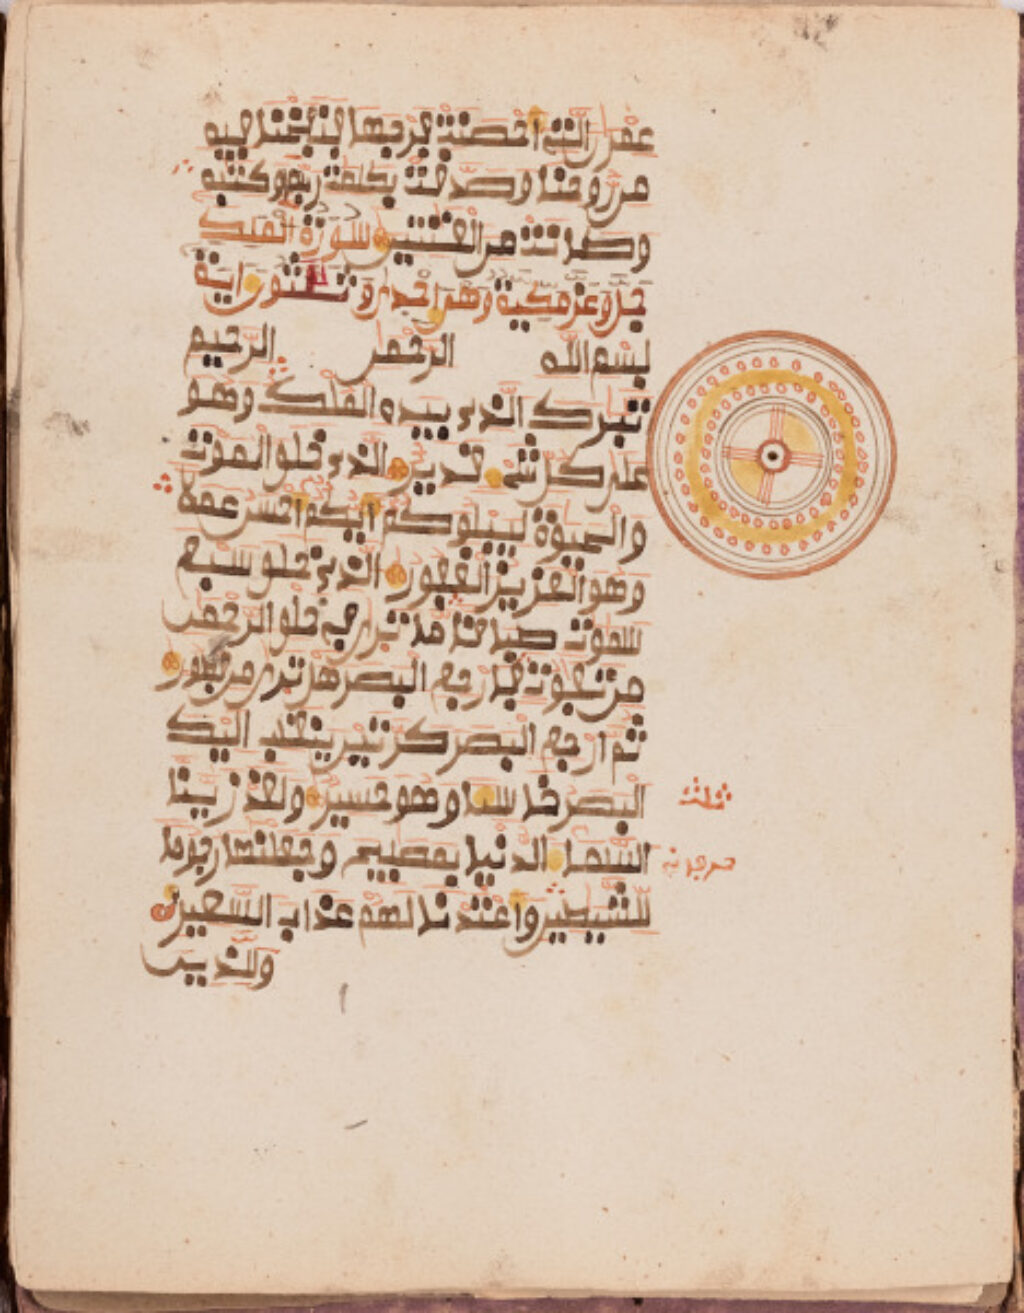 عمرن التے احصنت فرجها فنفخنا فيه
من روحنا وصدقت بكلمت ربها وكتبه
وكانت من القنتين سورة الملك
مكية وهى احدى وثلثون اية
بسم الله الرحمن الرحيم
تبرك الذي بيده الملك وهو
على كل شے قدير الذي خلق الموت
والحيوة ليبلوكم ايكم احسن عملا
وهو العزيز الغفور الذي خلق سبع
سموت طباقا ما ترى في خلق الرحمن
من تفوت فارجع البصر هل ترى من فطور
ثم ارجع البصر كرتين ينقلب اليك
البصر خاسئا وهو حسير ولقد زينا
ثلث
السماء الدنيا بمصبيح وجعلنها رجوما
للشيطين واعتدنا لهم عذاب السعير
وللذين